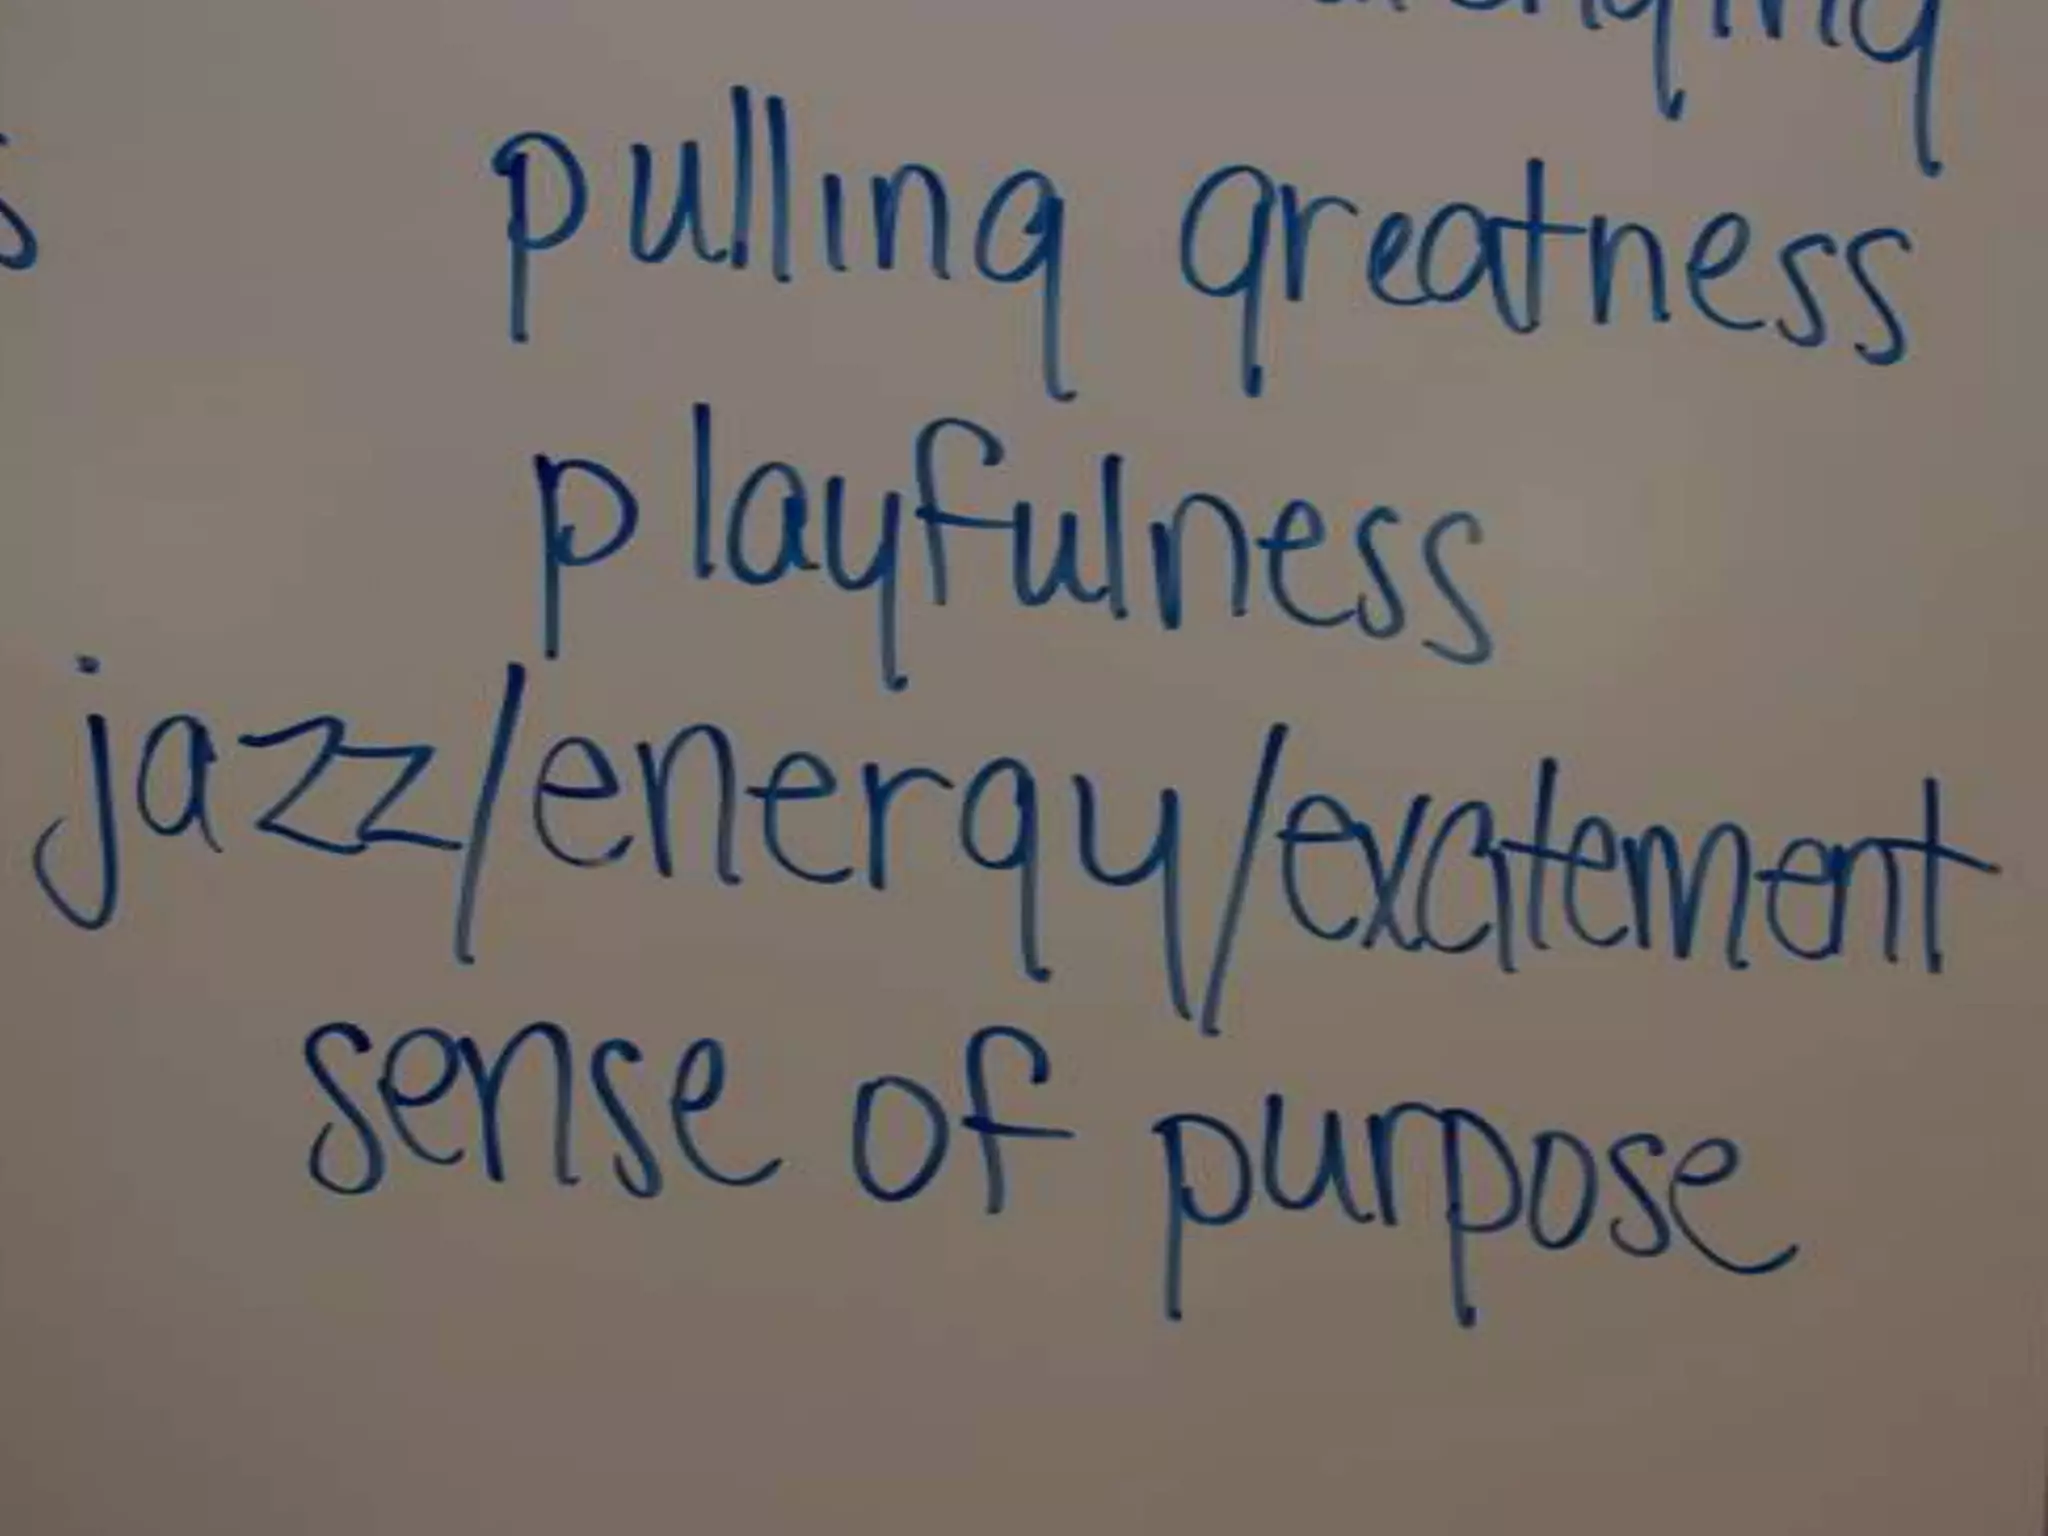 pulling greatness
playfulness
jazz/energy/excitement
sense of purpose